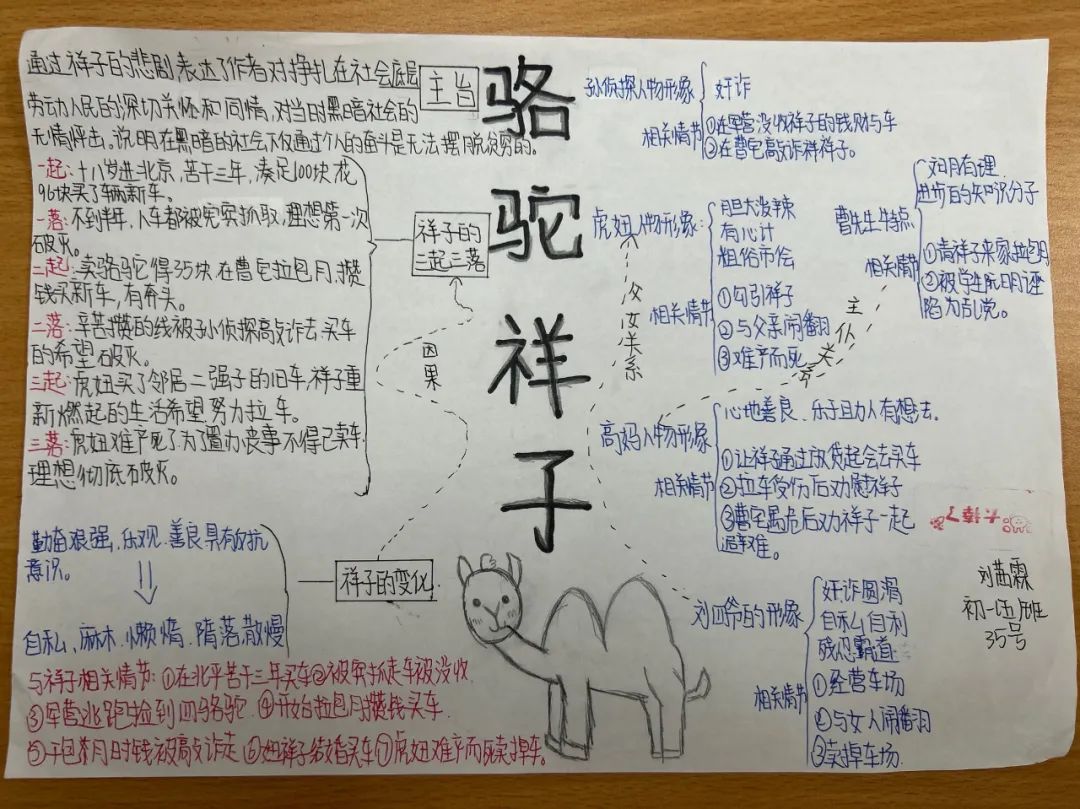 骆驼祥子
通过祥子的悲剧,表达了作者对挣扎在社会底层
劳动人民的深切关怀和同情,对当时黑暗社会的
无情抨击。说明在黑暗的社会不仅通过个人的奋斗是无法摆脱贫穷的。
主旨
一起:十八岁进北京,苦干三年,凑足100块花
96块买了辆新车。
一落:不到半年,人车都被宪兵抓取,理想第一次
破灭。
二起:卖骆驼得35块,在曹宅拉包月,攒
钱买新车,有奔头。
二落:辛苦攒的线被孙侦探高敲诈去,买车
的希望破灭。
三起:虎妞买了邻居二强子的旧车,祥子重
新燃起的生活希望,努力拉车。
三落:虎妞难产死了,为了置办丧事不得已卖车,
理想彻底破灭。
祥子的
三起三落
因果
勤奋艰强、乐观、善良具有反抗
意识。
自私、麻木、懒惰、堕落散慢
祥子的变化
与祥子相关情节:①在北平苦干三年买车②被宪抓走车被没收
③军营逃跑捡到四骆驼 ④开始自拉包月攒钱买车
⑤干包月时钱被高敲诈走 ⑥妞祥子结婚买车⑦虎妞难产而死卖掉车。
孙侦探人物形象
奸诈
相关情节
①在军营没收祥子的钱财与车
②在曹宅高敲诈祥祥子。
虎妞人物形象:
胆大泼辣
有心计
粗俗市侩
相关情节
①勾引祥子
②与父亲闹翻
③难产而死
父女关系
曹先生特点
知月有理
进步的知识分子
相关情节
①请祥子来家拉包月
②被学生阮明诬
陷为乱党。
主仆关系
高妈人物形象
心地善良、乐于助人有想去。
相关情节
①让祥子通过放贷起会去买车
②拉车受伤后劝慰祥子
③曹宅遇危后劝祥子一起
避难。
刘四爷的形象
奸诈圆滑
自私自利
残忍霸道
相关情节
①经营车场
②与女人闹翻
③卖掉车场
初一(五)班
35号